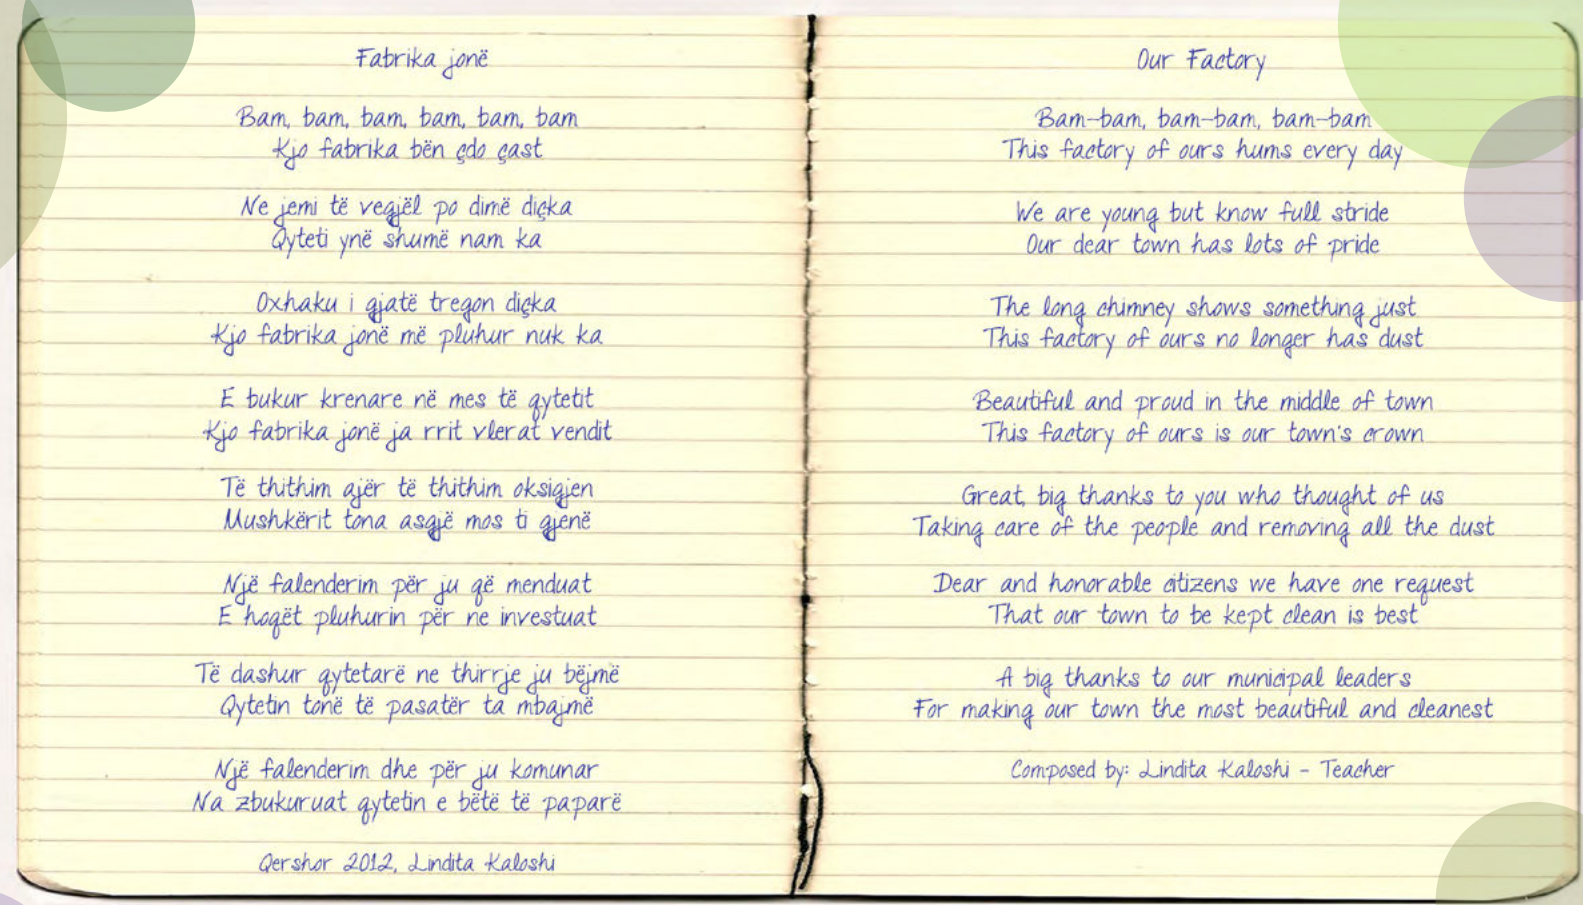 Fabrika jonë
Bam, bam, bam, bam, bam, bam
Kjo fabrika bën çdo çast
Ne jemi të vegjël po dimë diçka
Qyteti ynë shumë nam ka
Oxhaku i gjatë tregon diçka
Kjo fabrika jonë më pluhur nuk ka
E bukur krenare në mes të qytetit
Kjo fabrika jonë ja rrit vlerat vendit
Të thithim ajër të thithim oksigjen
Mushkërit tona asgjë mos ti gjenë
Një falenderim për ju që menduat
E hoqët pluhurin për ne investuat
Të dashur qytetarë ne thirrje ju bëjmë
Qytetin tonë të pasatër ta mbajmë
Një falenderim dhe për ju komunar
Na zbukuruat qytetin e bëtë të paparë
Qershor 2012, Lindita Kaloshi
Our Factory
Bam-bam, bam-bam, bam-bam
This factory of ours hums every day
We are young but know full stride
Our dear town has lots of pride
The long chimney shows something just
This factory of ours no longer has dust
Beautiful and proud in the middle of town
This factory of ours is our town's crown
Great, big thanks to you who thought of us
Taking care of the people and removing all the dust
Dear and honorable citizens we have one request
That our town to be kept clean is best
A big thanks to our municipal leaders
For making our town the most beautiful and cleanest
Composed by: Lindita Kaloshi - Teacher